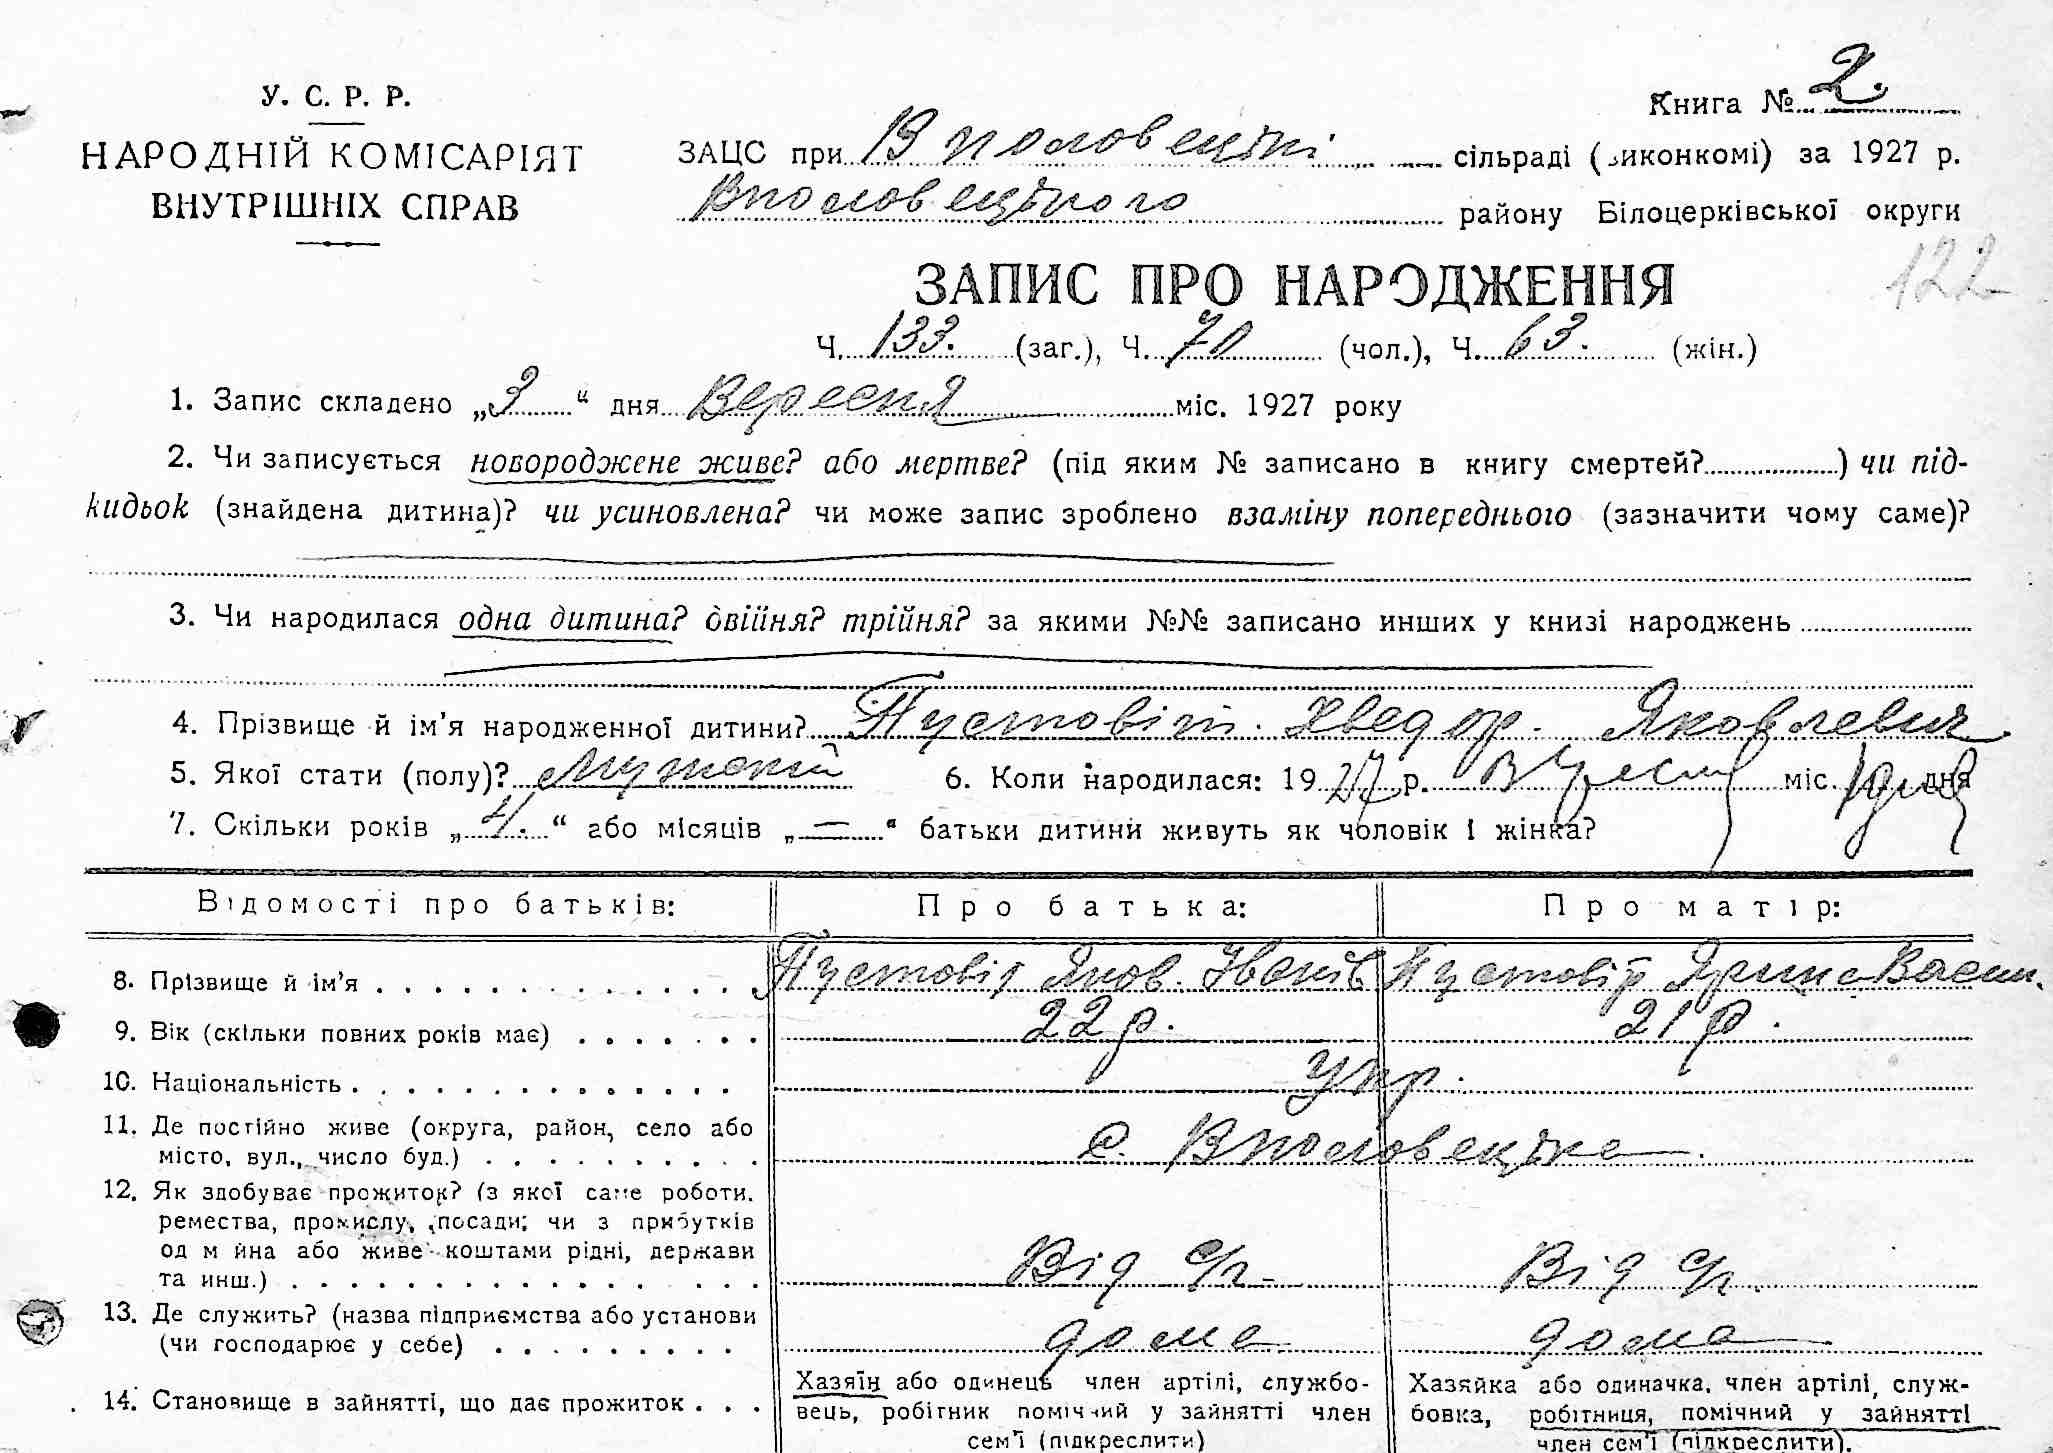 У. С. Р. Р.
НАРОДНІЙ КОМІСАРІЯТ
ВНУТРІШНІХ СПРАВ
Книга № 2.
ЗАЦС при В половецькі сільраді (виконкомі) за 1927 р.
Вполовецького району Білоцерківської округи
122
ЗАПИС ПРО НАРОДЖЕННЯ
Ч. 133. (заг.), Ч. 70 (чол.), Ч. 63. (жін.)
1. Запис складено „3“ дня Вересня міс. 1927 року
2. Чи записується новороджене живе? або мертве? (під яким № записано в книгу смертей?..........) чи під-
кидьок (знайдена дитина)? чи усиновлена? чи може запис зроблено взаміну попереднього (зазначити чому саме)?
3. Чи народилася одна дитина? двійня? трійня? за якими №№ записано инших у книзі народжень
4. Прізвище й ім’я народженної дитини? Пустовіт. Хведор. Яковлевич.
5. Якої стати (полу)? Мужский 6. Коли народилася: 1927 р. Вересня міс. 1 дня
7. Скільки років „4.“ або місяців „—“ батьки дитини живуть як чоловік і жінка?
Відомості про батьків: Про батька: Про матір:
8. Прізвище й ім’я Пустовіт Яков. Іванів Пустовіт Ярина Васил.
9. Вік (скільки повних років має) 22 р. 21 р.
10. Національність Укр.
11. Де постійно живе (округа, район, село або
місто, вул., число буд.) с. Вполовецьке
12. Як здобуває прожиток? (з якої саме роботи,
ремества, промислу, посади; чи з прибутків
од майна або живе коштами рідні, держави
та инш.) Від с/г. Від с/г.
13. Де служить? (назва підприємства або установи
(чи господарює у себе) дома дома
14. Становище в зайнятті, що дає прожиток
Хазяїн або одинець член артілі, службо-
вець, робігник помічний у зайнятті член
сем’ї (підкреслити)
Хазяйка або одиначка, член артілі, служ-
бовка, робітниця, помічний у зайнятті
член сем’ї (підкреслити).